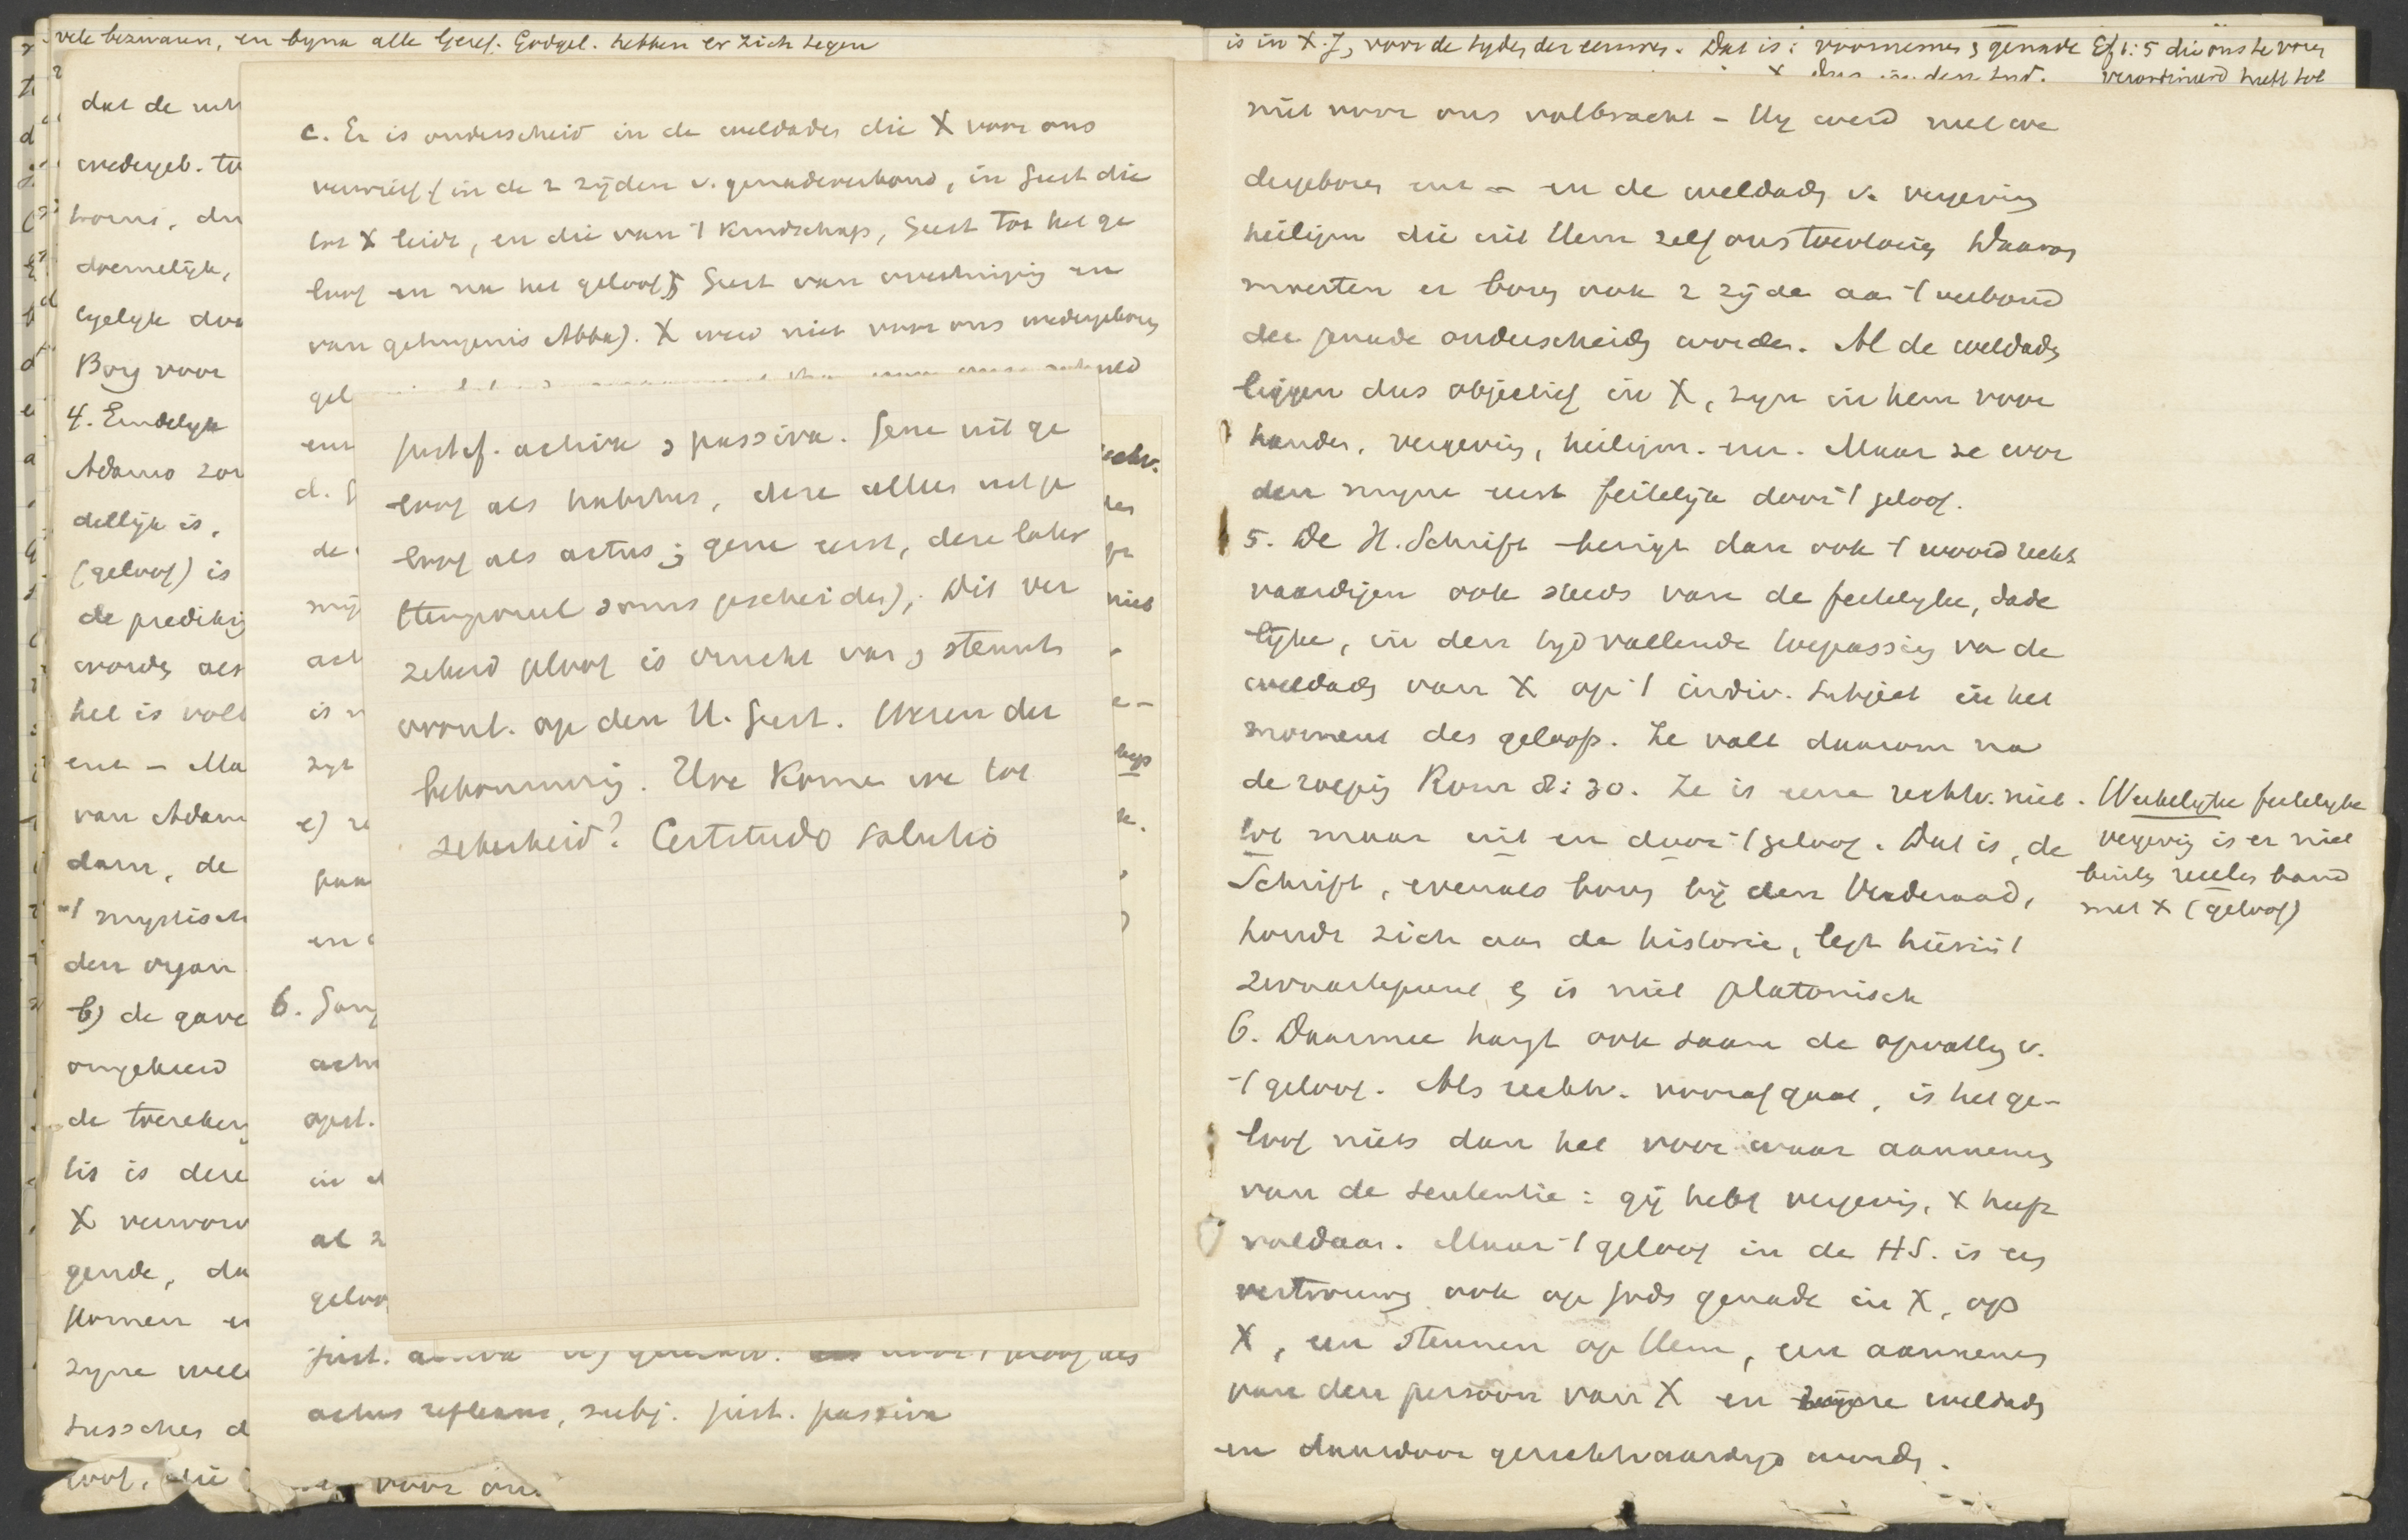 vele bezwaren, en byna alle Geref. Godgel. hebben er zich tegen
dat de
wedergeb.
doemelijk,
Borg voor
4. Eindelyk
Adams
dellijk is,
(geloof) is
de predikig
wordt als
het is vol
enz - Ma
van Adam
dam, de
't mystisch
den organ
b) de gave
omgekeerd
de toereken
tis is deze
X verwor
gende, da
komen
zyne wel
tusschen d
loof, die
c. Er is onderscheid in de weldaden die X voor ons
verwierf (in de 2 zijden v. genadeverbond, in Geest die
tot X leidt, en die van 't Kindschap, Geest tot het ge
loof en na het geloof; Geest van
van getuigenis Abba). X werd niet voor ons wedergeboren
gel
enz
d.
de
mij
act
is
zyt
e)
en
6.
apst.
in
al
geloo
just.
actus reflexus, subj. just. passiva
voor on
Justif. activa & passiva. Gene uit ge
loof als habitus, deze alleen uit ge
loof als actus; gene eerst, deze later
(temporeel soms gescheiden). Dit ver
zekerd geloof is vrucht van & steunt
op den H. Geest. Wezen der
Hoe komen we tot
zekerheid? Certitudo salutis
rechtv.
niet
is in X. J, voor de tyden der eeuwen. Dat is: voornemen & genade Ef 1:5 die ons te voren
verordineerd heeft tot
niet voor ons volbracht - Hy werd niet we
dergeboren enz - en de weldaden v. vergeving
heiligm die uit Hem zelf ons toevloeien Daarom
moesten er boven ook 2 zijden aan 't verbond
der genade onderscheiden worden. Al de weldaden
liggen dus objectief in X, zyn in hem voor
handen, vergeving, heiligm. enz. Maar ze wor
den myne eerst feitelijk door 't geloof.
5. De H. Schrift bezigt dan ook 't woord recht
vaardigen ook steeds van de feitelyke, dade
lijke, in den tyd vallende toepassing van de
weldaden van X op 't indiv. subject in het
moment des geloofs. Ze valt daarom na
de roeping Rom 8:30. Ze is eene rechtv. niet
tot maar uit en door 't geloof. Dat is, de
Schrift, evenals boven bij den Vrederaad,
houdt zich aan de historie, legt hierin 't
zwaartepunt & is niet platonisch
6. Daarmee hangt ook saam de opvatting v.
't geloof. Als rechtv. voorafgaat, is het ge-
loof niets dan het voor waar aannemen
van de sententie: gij hebt vergeving, X heeft
voldaan. Maar 't geloof in de HS. is een
vertrouwen ook op Gods genade in X, op
X, een steunen op Hem, een aannemen
van den persoon van X en zijne weldaden
en daardoor gerechtvaardigd worden.
Werkelyke feitelyke
vergeving is er niet
buiten reëlen band
met X (geloof)